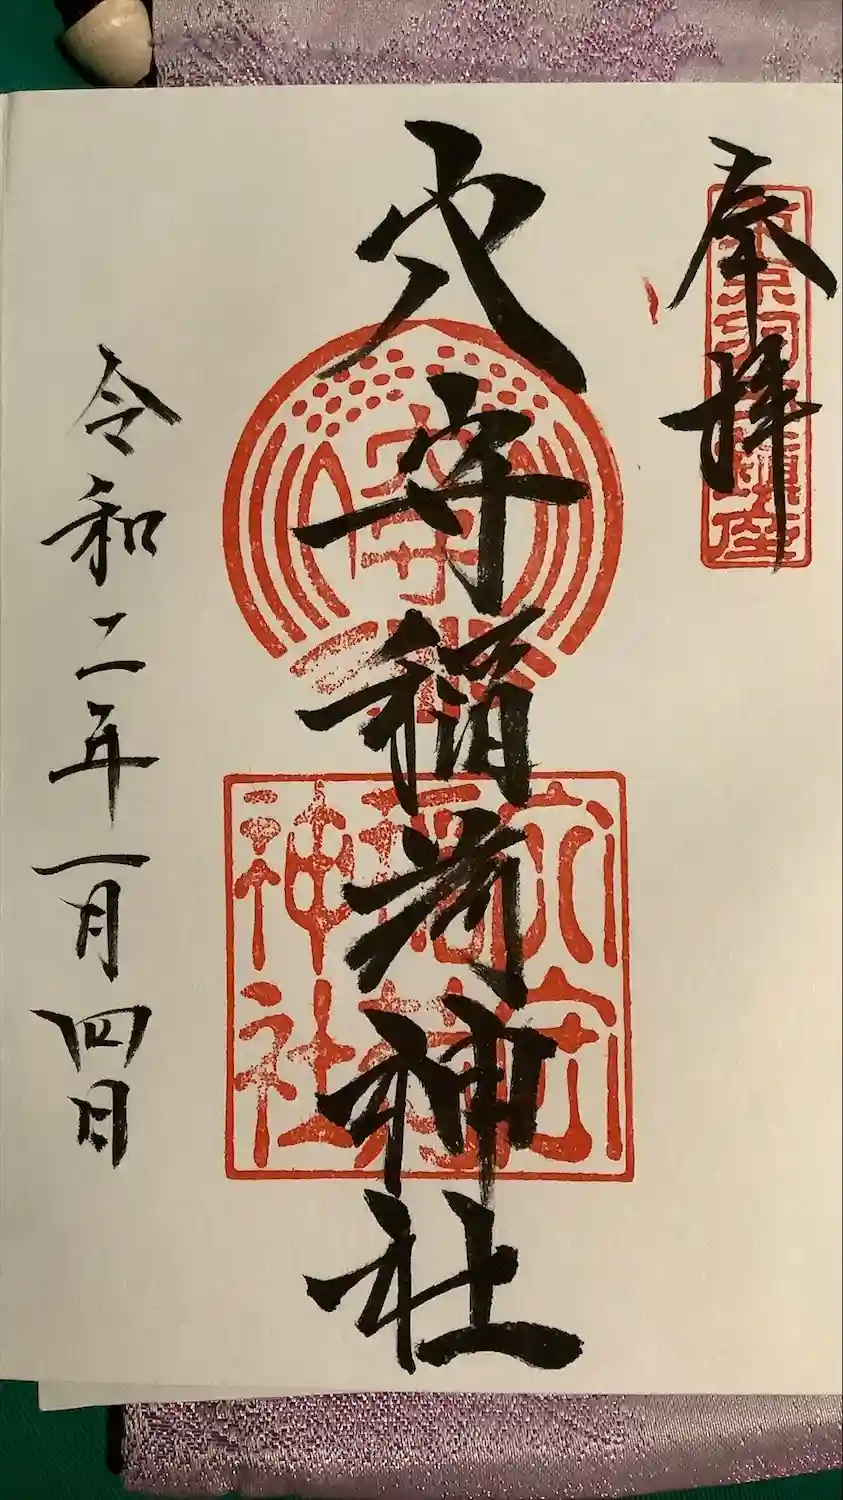 奉拝
東京羽田鎮座
穴守稲荷神社
穴守
穴守
稲荷
神社
令和二年一月四日